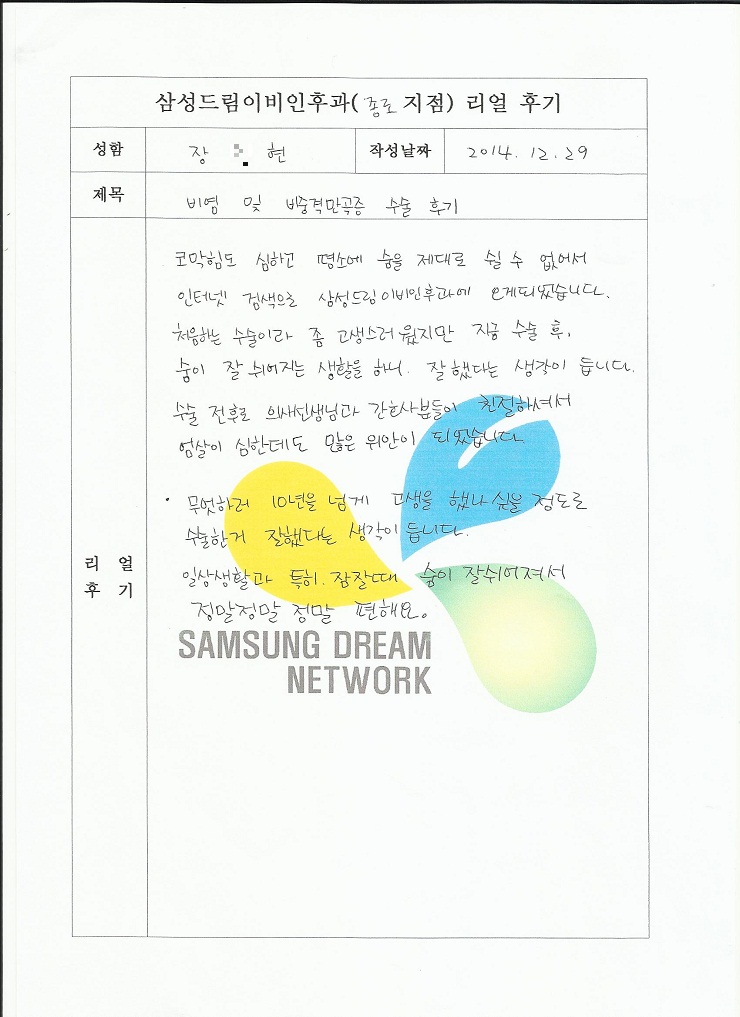 삼성드림이비인후과(종로 지점) 리얼 후기
성함 장 현 작성날짜 2014. 12. 29
제목 비염 및 비중격만곡증 수술 후기
코막힘도 심하고 평소에 숨을 제대로 쉴 수 없어서
인터넷 검색으로 삼성드림이비인후과에 오게되었습니다.
처음하는 수술이라 좀 고생스러웠지만 지금 수술 후,
숨이 잘 쉬어지는 생활을 하니. 잘했다는 생각이 듭니다.
수술 전후로 의사선생님과 간호사분들이 친절하셔서
엄살이 심한데도 많은 위안이 되었습니다
· 무엇하러 10년을 넘게 고생을 했나 싶을 정도로
수술한거 잘했다는 생각이 듭니다.
일상생활과 특히. 잠잘때 숨이 잘쉬어져서
정말정말 정말 편해요。
리얼
후기
SAMSUNG DREAM
NETWORK